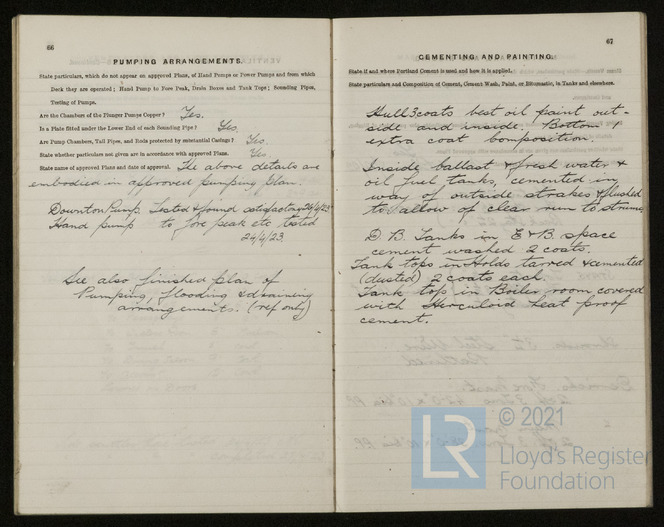 66
PUMPING ARRANGEMENTS.
State particulars, which do not appear on approved Plans, of Hand Pumps or Power Pumps and from which
Deck they are operated; Hand Pump to Fore Peak, Drain Boxes and Tank Tops; Sounding Pipes,
Testing of Pumps.
Are the Chambers of the Plunger Pumps Copper? Yes.
Is a Plate fitted under the Lower End of each Sounding Pipe? Yes.
Are Pump Chambers, Tail Pipes, and Rods protected by substantial Casings? Yes.
State whether particulars not given are in accordance with approved Plans. Yes
State name of approved Plans and date of approval. The above details are
embodied in approved pumping plan.
Downton Pump. Tested & found satisfactory 24/4/23
Hand pump to fore peak etc tested
24/4/23.
See also finished plan of
Pumping, flooding & draining
arrangements. (ref only)
67
CEMENTING AND PAINTING.
State if and where Portland Cement is used and how it is applied.
State particulars and Composition of Cement, Cement Wash, Paint, or Bitumastic, in Tanks and elsewhere.
Hull 3 coats best oil paint out-
side and inside. Bottom 1
extra coat composition.
Inside ballast & fresh water &
oil fuel tanks, cemented in
way of outside strakes & flushed
to allow of clear run to
D. B. Tanks in E & B space
cement washed 2 coats.
Tank tops in Holds tarred & cemented
(dusted) 2 coats each.
Tank tops in Boiler room covered
with Herculoid heat proof
cement.
LR
© 2021
Lloyd's Register
Foundation